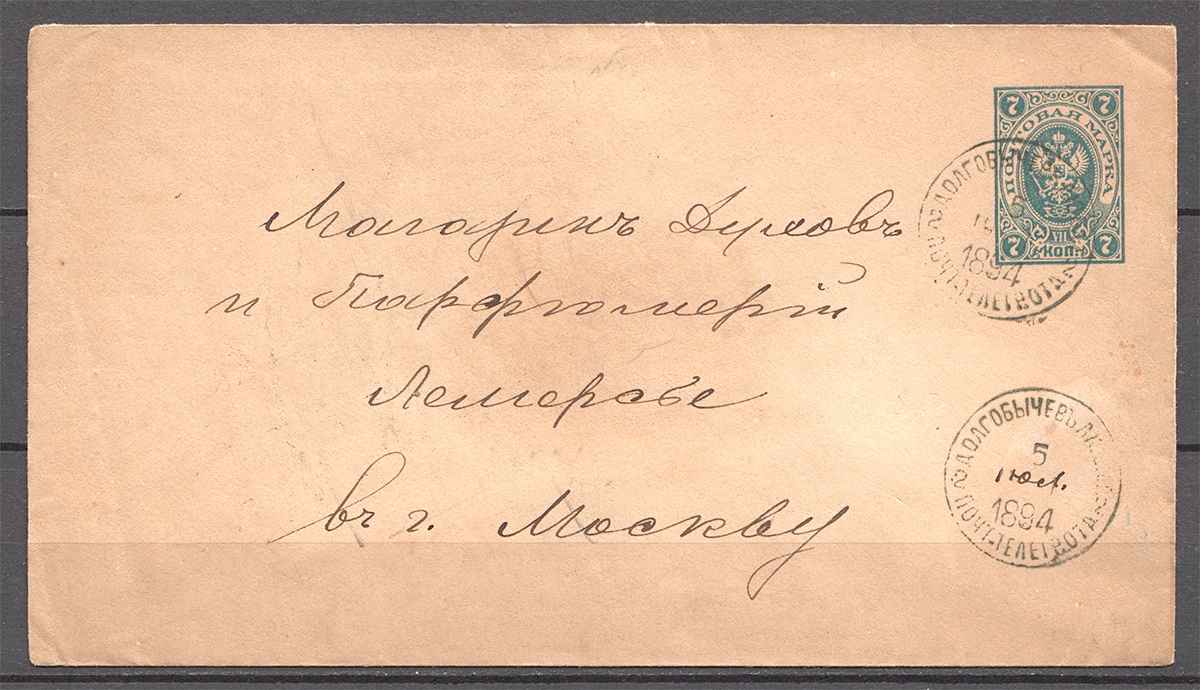 7 7
ПОЧТОВАЯ МАРКА
VII
7 КОП. 7
ДОЛГОБЫЧ
5
1894
ПОЧТ. ТЕЛЕГ. ОТД.
Магазинъ Духовъ
и Парфюмерій
Лемерсье
въ г. Москву
ДОЛГОБЫЧЕВЪ ЛЮ
5
Июл.
1894
ПОЧТ. ТЕЛЕГ. ОТД.